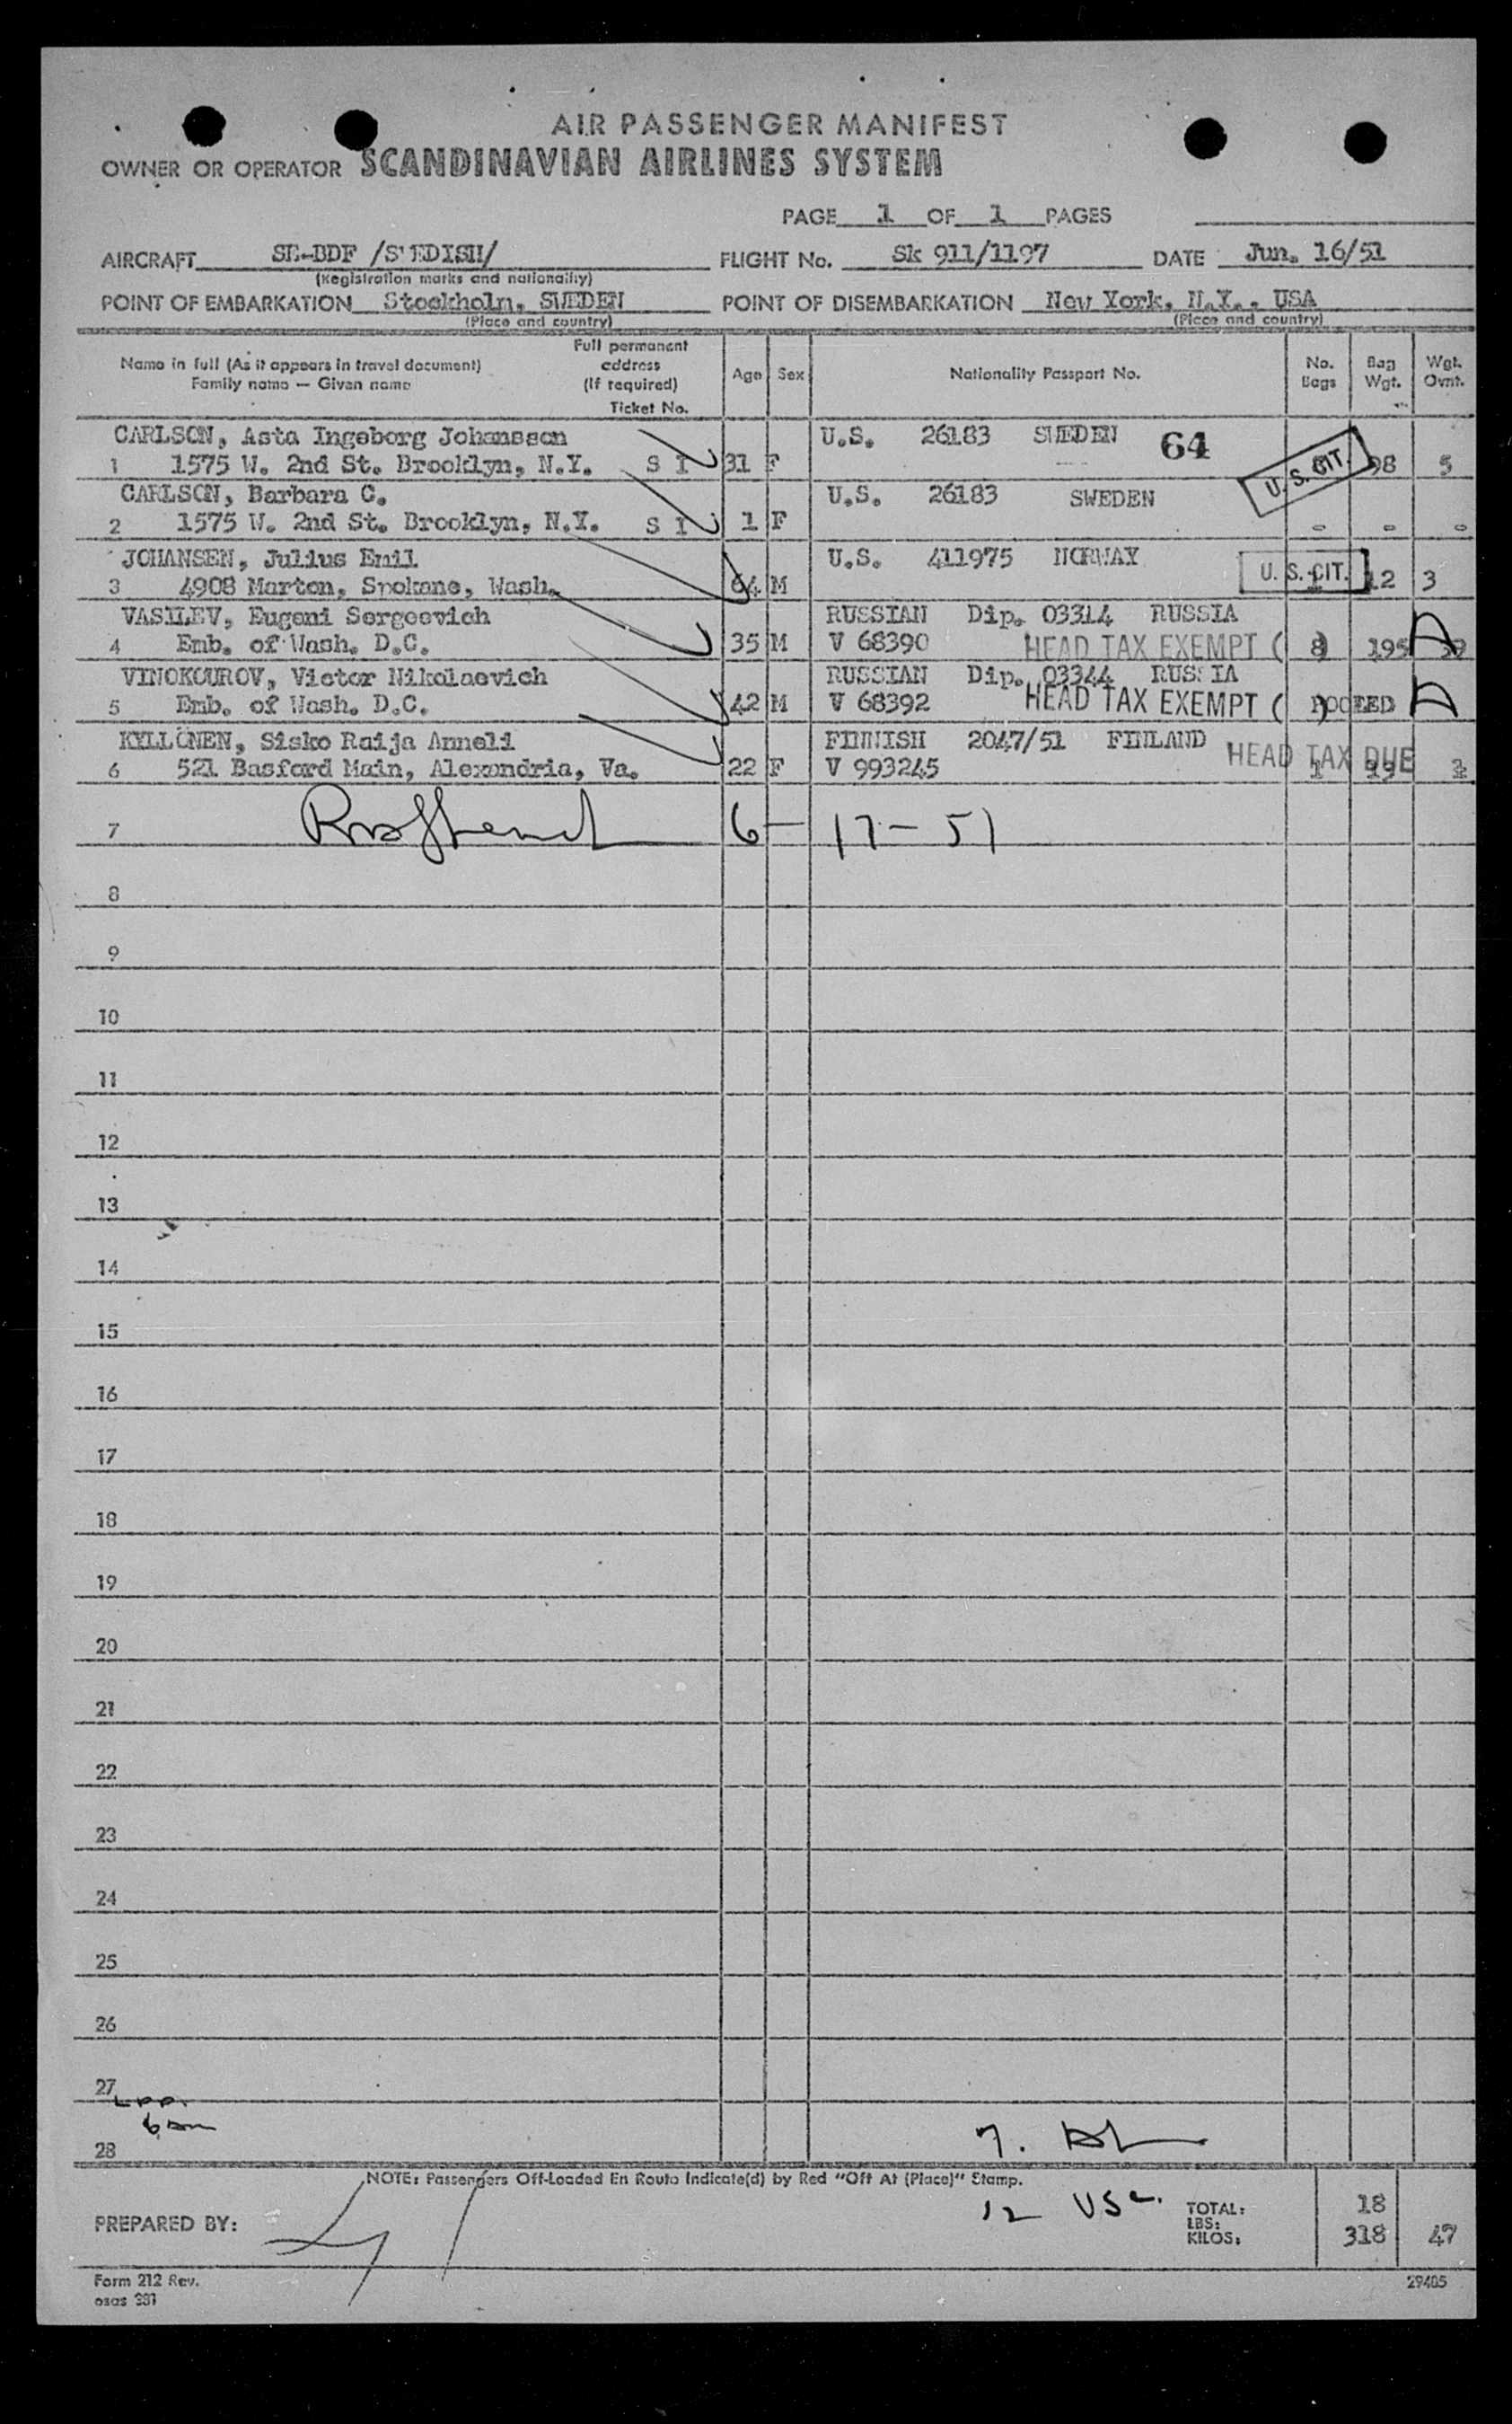 AIR PASSENGER MANIFEST
OWNER OR OPERATOR SCANDINAVIAN AIRLINES SYSTEM
PAGE 1 OF 1 PAGES
AIRCRAFT SE-BDF /SWEDISH/ FLIGHT No. Sk 911/1197 DATE Jun. 16/51
(Registration marks and nationality)
POINT OF EMBARKATION Stockholm, SWEDEN POINT OF DISEMBARKATION New York, N.Y., USA
(Place and country) (Place and country)
Name in full (As it appears in travel document) Family name — Given name Full permanent address (If required) Ticket No. Age Sex Nationality Passport No. No. Bags Bag Wgt. Wgt. Ovnt.
CARLSON, Asta Ingeborg Johansson U.S. 26183 SWEDEN 64
1 1575 W. 2nd St. Brooklyn, N.Y. S I 31 F U.S. CIT. 98 5
CARLSON, Barbara C. U.S. 26183 SWEDEN
2 1575 W. 2nd St. Brooklyn, N.Y. S I 1 F - - -
JOHANSEN, Julius Emil U.S. 411975 NORWAY
3 4908 Marton, Spokane, Wash. 64 M U. S. CIT. 12 3
VASILEV, Eugeni Sergeevich RUSSIAN Dip. 03314 RUSSIA
4 Emb. of Wash. D.C. 35 M V 68390 HEAD TAX EXEMPT ( 8) 195 A
VINOKOUROV, Victor Nikolaevich RUSSIAN Dip. 03344 RUSSIA
5 Emb. of Wash. D.C. 42 M V 68392 HEAD TAX EXEMPT ( ) POOLED A
KYLLÖNEN, Sisko Raija Anneli FINNISH 2047/51 FINLAND
6 521 Basford Main, Alexandria, Va. 22 F V 993245 HEAD TAX DUE 1
7 6-17-51
8
9
10
11
12
13
14
15
16
17
18
19
20
21
22
23
24
25
26
27
28
NOTE: Passengers Off-Loaded En Route Indicate(d) by Red "Off At (Place)" Stamp.
12 USC.
PREPARED BY: TOTAL: 18
LBS:
KILOS: 318 47
Form 212 Rev. 29405
osas 381